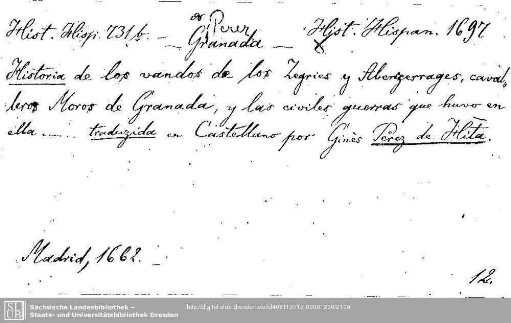 Hist. Hisp. 731 b. — Perez Hist. Hispan. 1697
Granada —
Historia de los vandos de los Zegries y Abenzerrages, caval-
leros Moros de Granada, y las civiles guerras que huvo en
ella ..... traduzida en Castellano por Ginés Pérez de Hita.
Madrid, 1662. —
12.
SLUB
Sächsische Landesbibliothek –
Staats- und Universitätsbibliothek Dresden